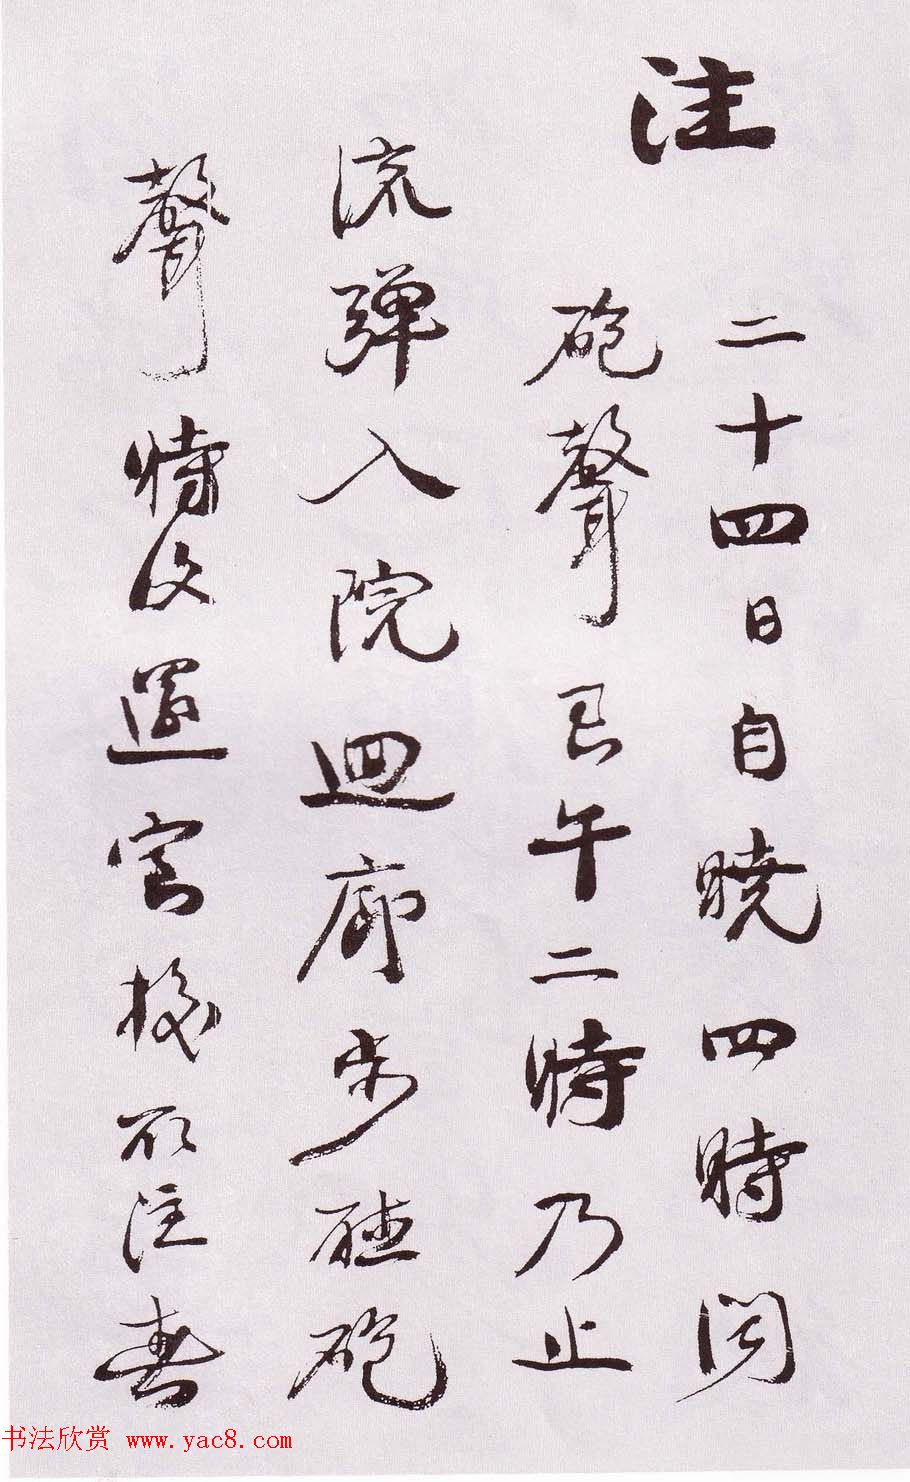 注
二十四日自曉四時聞
砲聲巳午二時乃止
流彈入院迴廊步聽砲
聲時復還室校所注
书法欣赏 www.yac8.com